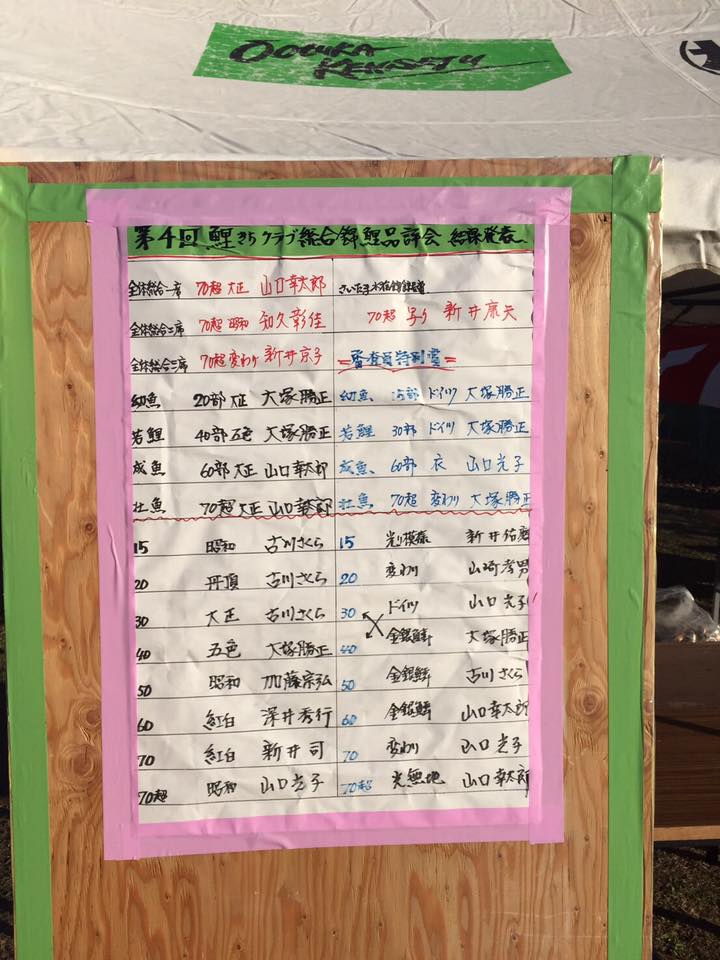 第4回 鯉きちクラブ総合錦鯉品評会 結果発表
全体総合一席 70超 大正 山口幸太郎
全体総合二席 70超 昭和 知久彰佳 70超 新井康夫
全体総合三席 70超変わり 新井京子 審査員特別賞
幼魚 20部 大正 大塚勝正 幼魚、15部 ドイツ 大塚勝正
若鯉 40部 五色 大塚勝正 若鯉 30部 ドイツ 大塚勝正
成魚 60部 大正 山口幸太郎 成魚、60部 衣 山口光子
壮魚 70超 大正 山口幸太郎 壮魚、70超 変わり 大塚勝正
15 昭和 古川さくら 15 光り模様 新井佑
20 丹頂 古川さくら 20 変わり 山崎孝男
30 大正 古川さくら 30 ドイツ 山口光子
40 五色 大塚勝正 40 金銀鱗 大塚勝正
50 昭和 加藤宗弘 50 金銀鱗 古川さくら
60 紅白 深井秀行 60 金銀鱗 山口幸太郎
70 紅白 新井司 70 変わり 山口光子
70超 昭和 山口光子 70超 光無地 山口幸太郎